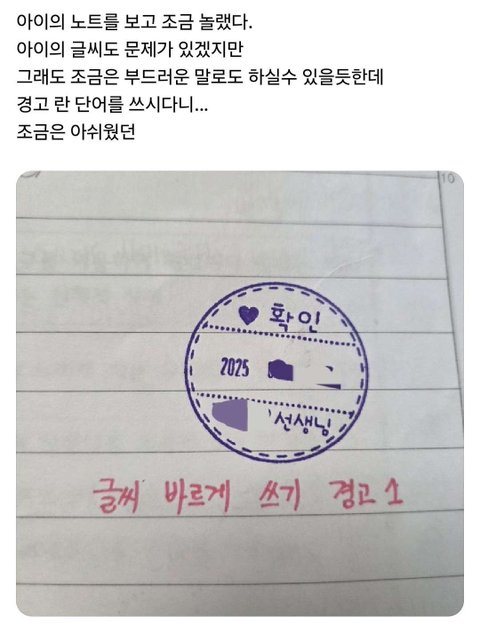 아이의 노트를 보고 조금 놀랬다.
아이의 글씨도 문제가 있겠지만
그래도 조금은 부드러운 말로도 하실수 있을듯한데
경고 란 단어를 쓰시다니...
조금은 아쉬웠던
10
확인
2025
선생님
글씨 바르게 쓰기 경고 1